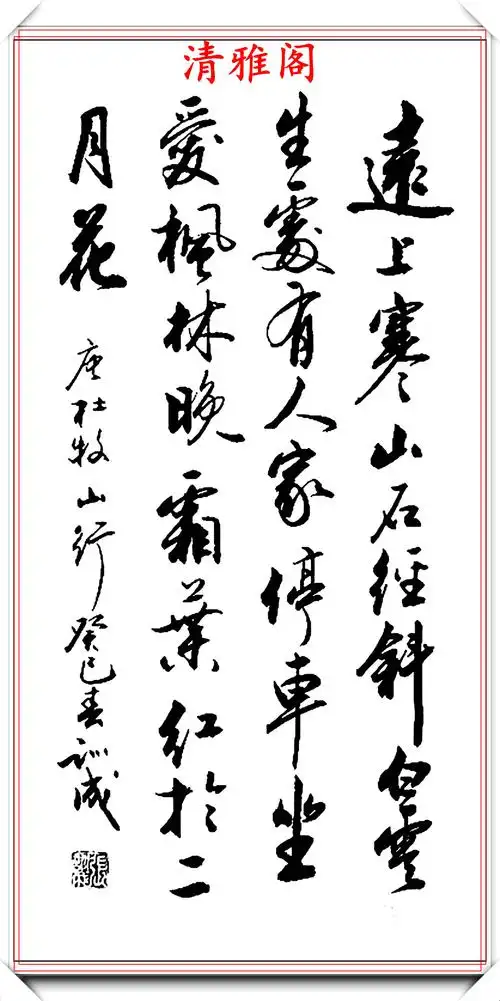 清雅阁
遠上寒山石徑斜白雲
生處有人家停車坐
愛楓林晚霜葉紅於二
月花
唐杜牧山行癸巳春訓成